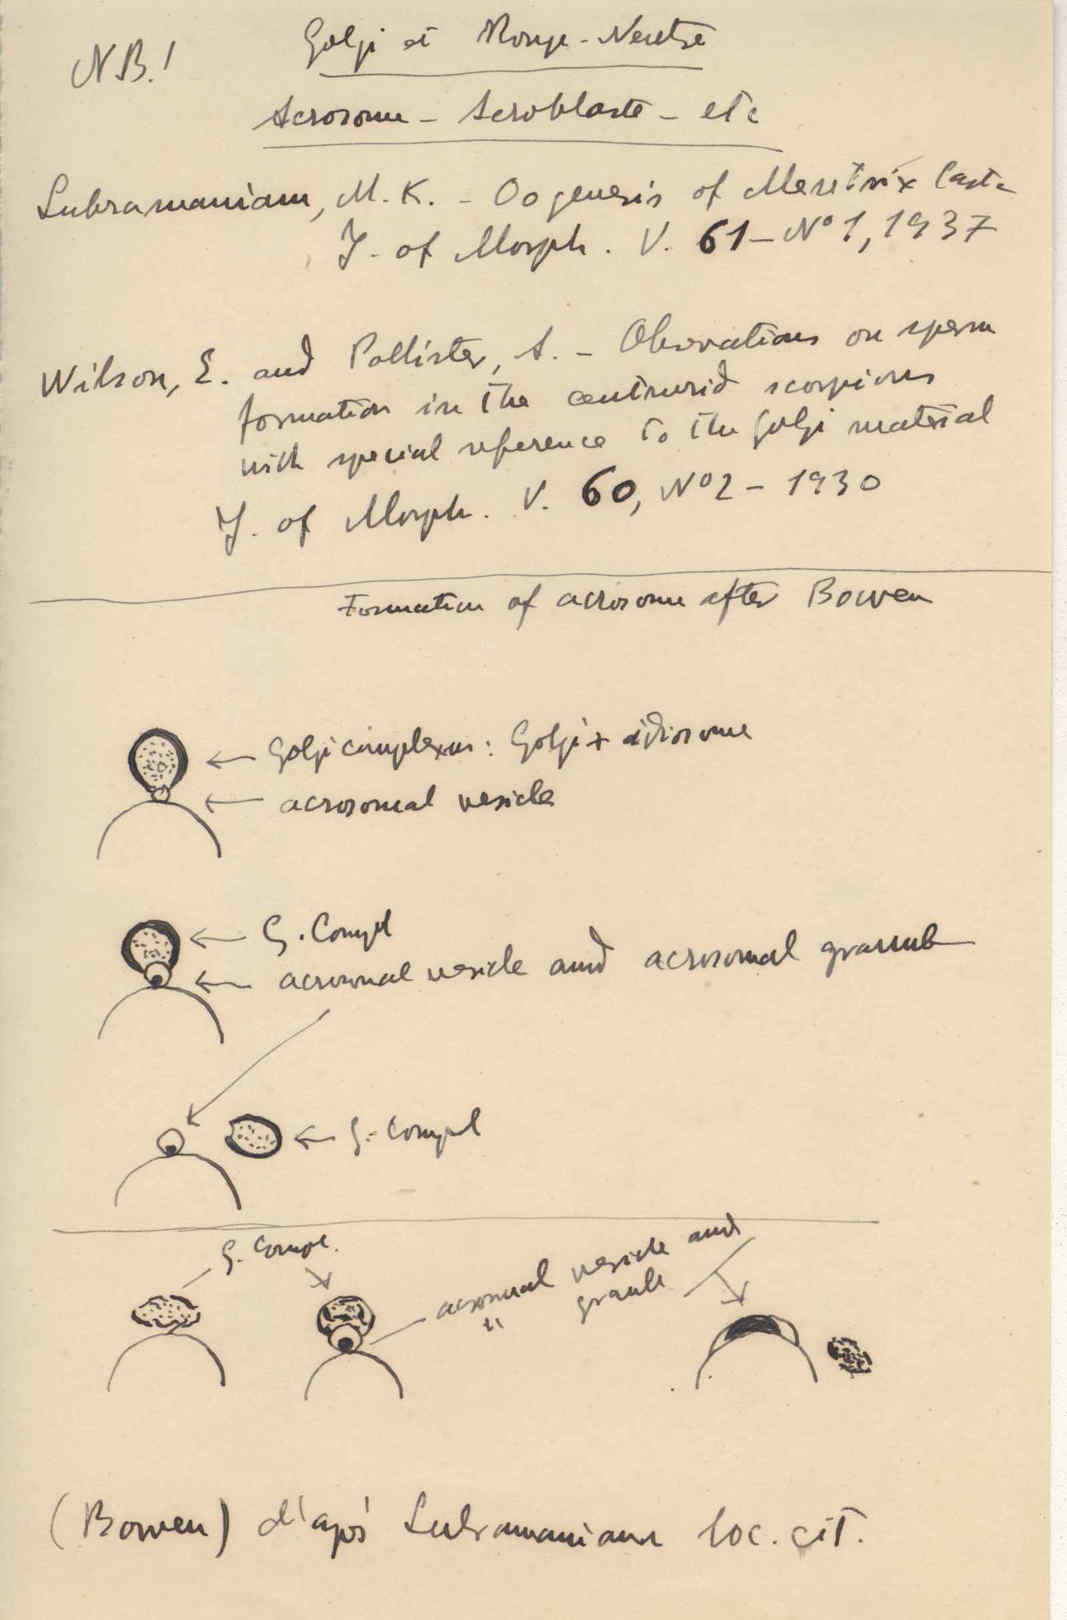 N.B.!
Golgi et Rouge-Neutre
Acrosome - Acroblaste - etc
Subramaniam, M.K. - Oogenesis of Meretrix Casta
J. of Morph. V. 61 - Nº 1, 1937
Wilson, E. and Pollister, A. - Observations on sperm
formation in the centrurid scorpions
with special reference to the Golgi material
J. of Morph. V. 60, Nº 2 - 1930
Formation of acrosome after Bowen
← Golgi complexus: Golgi + idiosome
← acrosomal vesicle
← G. Compl
← acrosomal vesicle and acrosomal granule
← G. Compl
G. Compl.
acrosomal vesicle and
" granule
(Bowen) d'après Subramaniam loc. cit.